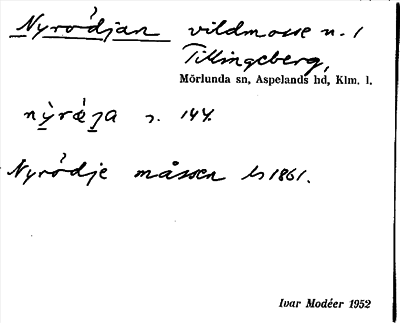 Nyrödjan vildmosse n. 1
Tillingeberg,
Mörlunda sn, Aspelands hd, Klm. l.
s. 144.
Nyrödje måssen Ls 1861.
Ivar Modéer 1952